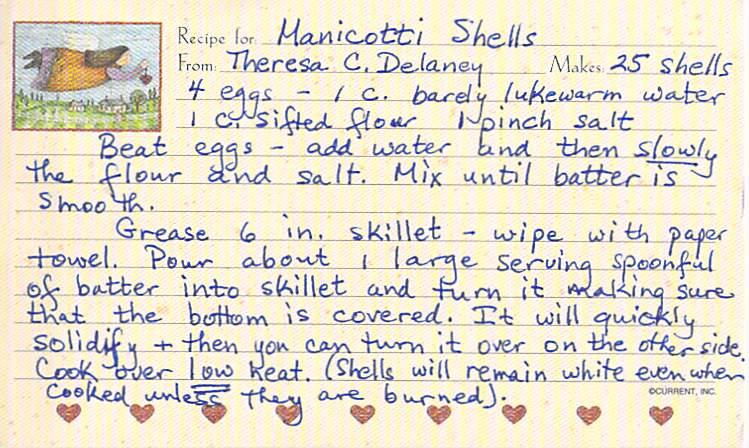 Recipe for: Manicotti Shells
From: Theresa C. Delaney Makes: 25 shells
4 eggs - 1 c. barely lukewarm water
1 c. sifted flour 1 pinch salt
Beat eggs - add water and then slowly
the flour and salt. Mix until batter is
smooth.
Grease 6 in. skillet - wipe with paper
towel. Pour about 1 large serving spoonful
of batter into skillet and turn it making sure
that the bottom is covered. It will quickly
solidify + then you can turn it over on the other side.
Cook over low heat. (Shells will remain white even when
cooked unless they are burned).
©CURRENT, INC.